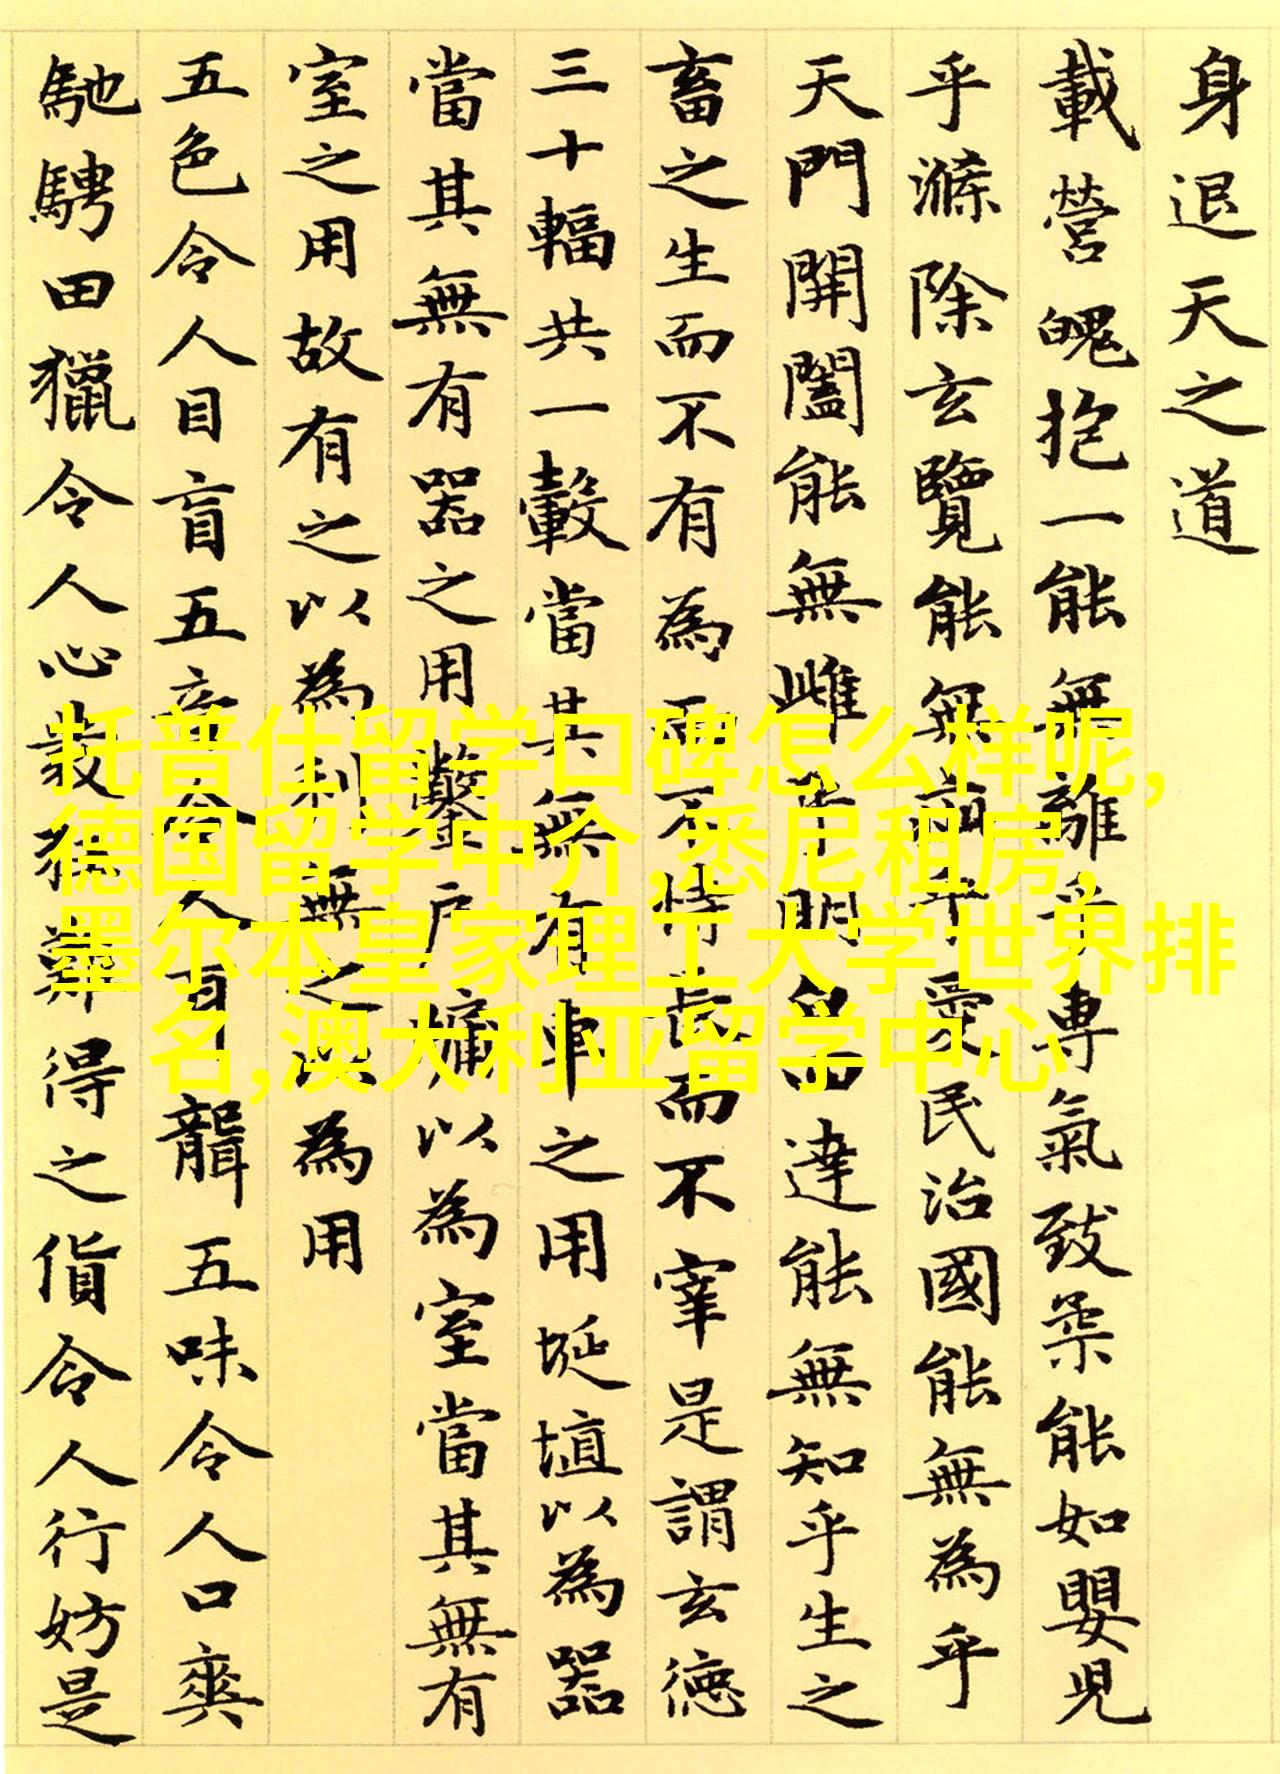 身退天之道
載營魄抱一能無離乎專氣致柔能如嬰兒
乎滌除玄覽能無疵乎愛民治國能無為乎
天門開闔能無雌乎明白而達能無知乎生之
畜之生而不有為而不恃長而不宰是謂玄德
三十輻共一轂當其無有車之用埏埴以為器
當其無有器之用鑿戶牖以為室當其無有
室之用故有之以為利無之以為用
五色令人目盲五音令人耳聾五味令人口爽
馳騁田獵令人心發狂難得之貨令人行妨是
托普仕留学口碑怎么样呢,
德国留学中介,悉尼租房,
墨尔本皇家理工大学世界排
名,澳大利亚留学中心